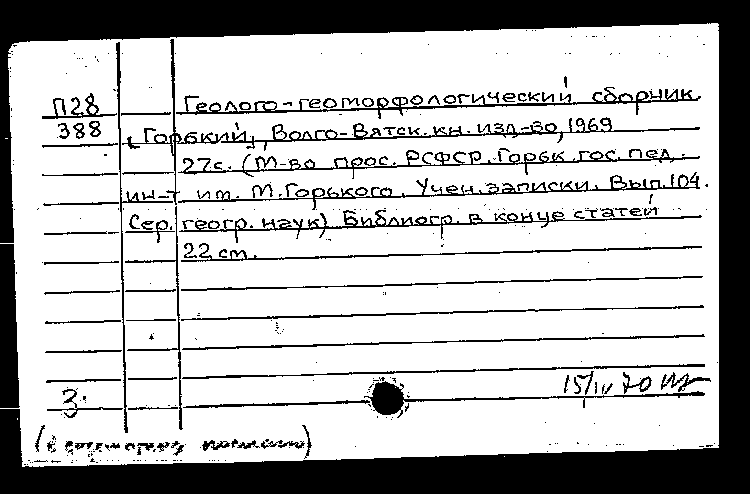 П28 Геолого-геоморфологический сборник.
388 [Горький], Волго-Вятск. кн. изд-во, 1969
27с. (М-во прос. РСФСР. Горьк. гос. пед.
ин-т им. М. Горького. Учен. записки. Вып. 104.
Сер. геогр. наук) Библиогр. в конце статей
22 см.
3. 15/IV 70